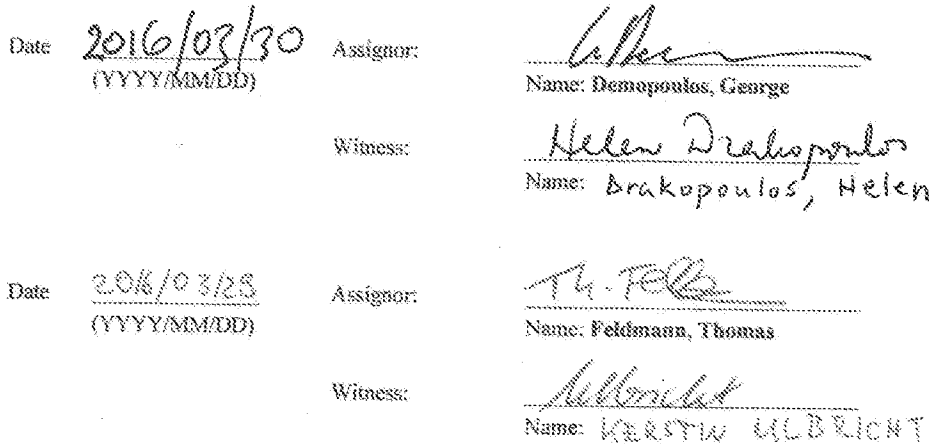 Date 2016/03/30 Assignor:
(YYYY/MM/DD) Name: Demopoulos, George
Witness: Helen Drakopoulos
Name: Drakopoulos, Helen
Date 2016/03/25 Assignor: Th. Feld
(YYYY/MM/DD) Name: Feldmann, Thomas
Witness: Ulbricht
Name: KERSTIN ULBRICHT